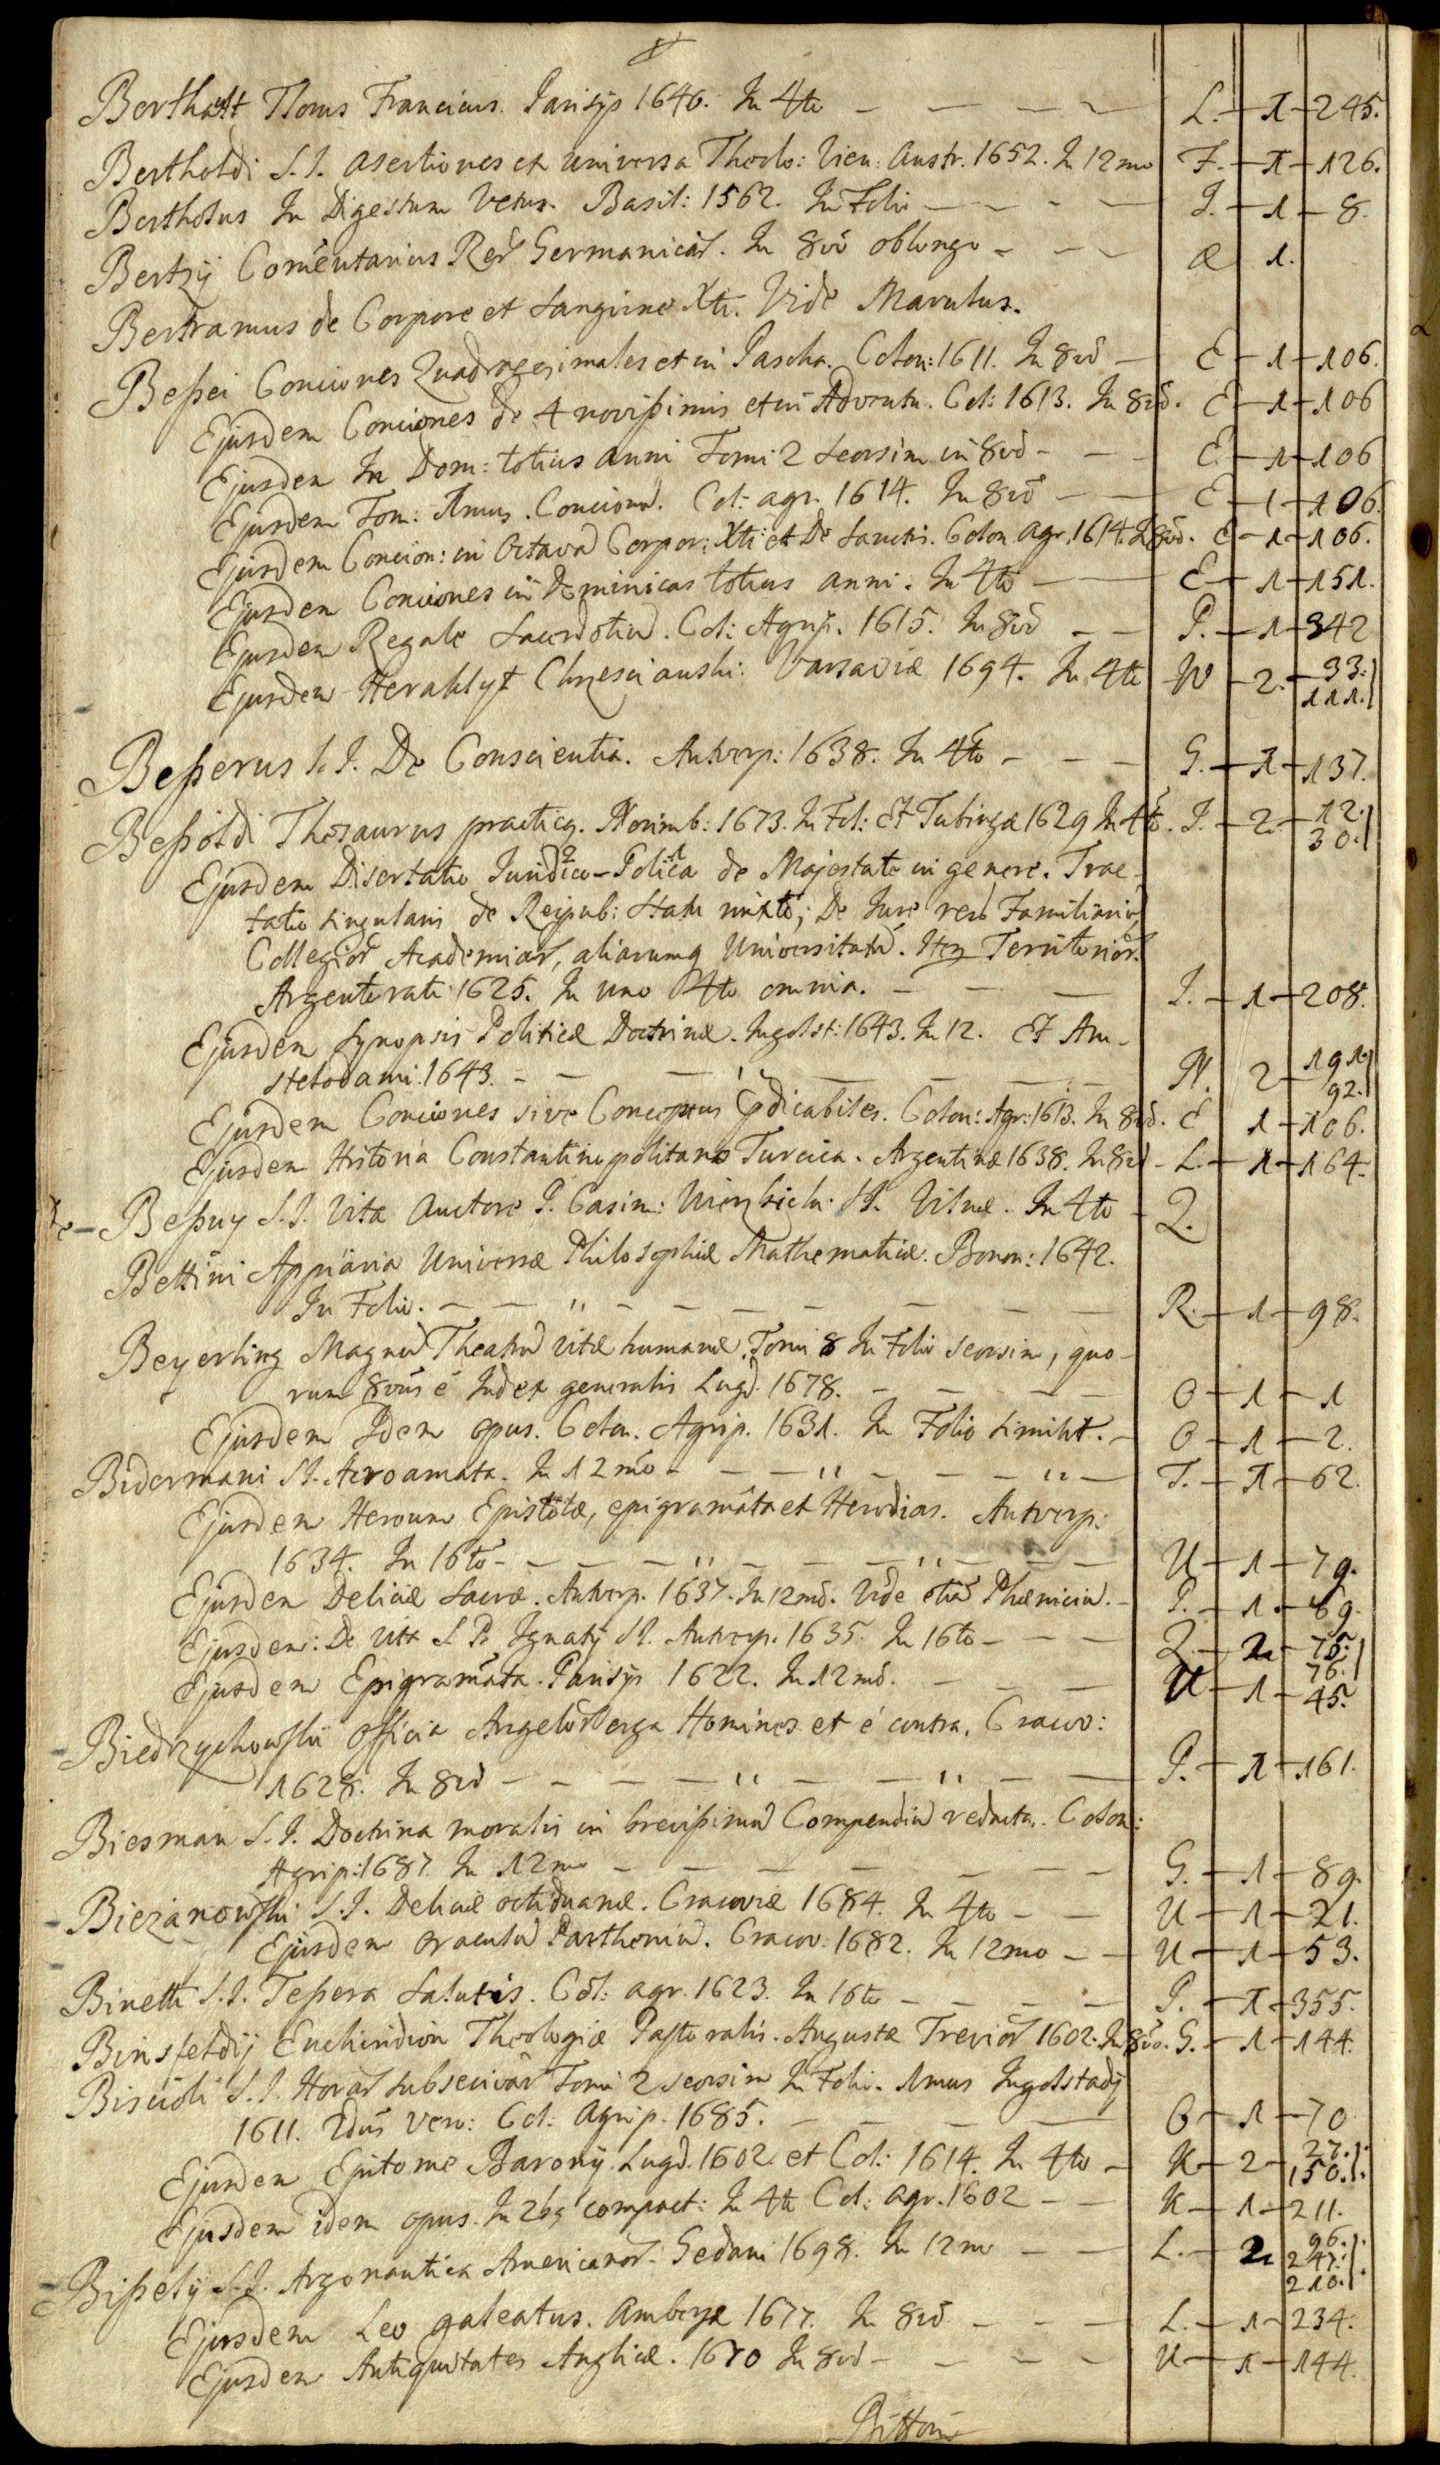 Berthault Florus Francicus. Parisijs 1646. In 4to — L. — 1 — 245.
Bertholdi S.I. asertiones ex universa Theolo: Vien: Austr. 1652. In 12mo F. — 1 — 126.
Bertholus In Digestum Vetus. Basil: 1562. In Folio — I. — 1 — 8.
Bertzij Comentarius Rer Germanicar. In 8vo oblongo — Æ 1.
Bertramus de Corpore et Sanguine Xti. Vide Marulus.
Beßei Conciones Quadragesimales et in Pascha. Colon: 1611. In 8vo — E — 1 — 106.
Ejusdem Conciones de 4 novißimis et in Adventu. Col: 1613. In 8vo. E — 1 — 106
Ejusdem In Dom: totius anni Tomi 2 seorsim in 8vo — E — 1 — 106
Ejusdem Tom: 1mus. Concionu. Col: agr. 1614. In 8vo — E — 1 — 106.
Ejusdem Concion: in Octava Corpor: Xti et De Sanctis. Colon agr. 1614. In 8vo. E — 1 — 106.
Ejusdem Conciones in Dominicas totius anni. In 4to — E — 1 — 151.
Ejusdem Regale Sacerdotiu. Col: Agrip. 1615. In 8vo — P. — 1 — 342
Ejusdem Heraklyt Chrzescianski: Varsaviæ 1694. In 4to W — 2. — 33.
111.
Beßerus S.I. De Conscientia. Antverp: 1638. In 4to — G. — 1 — 137.
Beßoldi Thesaurus practicq. Norimb: 1673. In Fol: Et Tubingæ 1629 In 4to. I. — 2. — 12.
30.
Ejusdem Disertatio Juridico-Polica de Majestate in genere. Trac-
tatio singularis de Reipub: Statu mixto; De Jure rerū Familiariū,
Collegior Academiar, aliarumq Universitatu. Item Territorior.
Argentorati 1625. In uno 4to omnia. — I. — 1 — 208.
Ejusdem Synopsis Politicæ Doctrinæ. Ingolst: 1643. In 12. Et Am-
stelodami. 1643. — N. 2 — 191.
92.
Ejusdem Conciones sive Conceptus Prædicabiles. Colon: Agr: 1613. In 8vo. E 1 — 106.
Ejusdem Historia Constantinopolitano Turcica. Argentinæ 1638. In 8vo — L. — 1 — 164.
Beßuy S.I. Vita Auctore P. Casim: S.I. Vilnæ. In 4to — Q.
Bettini Appiaria Universæ Philosophiæ Mathematicæ. Bonon: 1642.
In Folio. — R. — 1 — 98.
Beyerling Magnu Theatru vitæ humanæ. Tomi 8 In Folio seorsim, quo-
rum 8vus é Index generalis Lugd. 1678. — O — 1 — 1
Ejusdem Idem opus. Colon. Agrip. 1631. In Folio simili. — O — 1 — 2.
Bidermani S.I. Acroamata. In 12mo — T. — 1 — 62.
Ejusdem Heroum Epistolæ, epigramata et Herodias. Antverp:
1634. In 16to — U — 1 — 79.
Ejusdem Deliciæ Sacræ. Antverp. 1637. In 12mo. Vide etiā Phæniciu. — P. — 1. — 69.
Ejusdem: De Vita S.P. Ignatij S.I. Antverp. 1635. In 16to — Q — 2 — 75.
76.
Ejusdem Epigramata. Parisijs 1622. In 12mo. — U — 1 — 45.
Biedrzychowskii officia Angelor erga Homines et é contra. Cracov:
1628. In 8vo — P. — 1 — 161.
Biesman S.I. Doctrina moralis in brevißimu Compendiu redacta. Colon:
Agrip: 1687. In 12mo — G. — 1 — 89.
Biezanowski S.I. Deliciæ octiduanæ. Cracoviæ 1684. In 4to — U — 1 — 21.
Ejusdem oraculu Partheniu. Cracov: 1682. In 12mo — U — 1 — 53.
Binetti S.I. Teßera Salutis. Col: agr. 1623. In 16to — P. — 1 — 355.
Binsfeldij Enchiridion Theologiæ Pastoralis. Augustæ Trevior 1602. In 8vo. G. — 1 — 144.
Biscioli S.I. Horar subsecivar Tomi 2 seorsim In Folio. 1mus Ingolstadij
1611. 2dus vero: Col: Agrip. 1685. — O — 1 — 70
Ejusdem Epitome Baronij. Lugd. 1602. et Col: 1614. In 4to — K — 2 — 27.
150.
Ejusdem idem opus. In 2bq compact: In 4to Col: agr. 1602 — K — 1 — 211.
Bißelij S.I. Argonautica Americanor. Gedani 1698. In 12mo — L. — 2 96.
247.
210.
Ejusdem Leo galeatus. Ambergæ 1677. In 8vo — L. — 1 — 234.
Ejusdem Antiquitates Angliæ. 1670 In 8vo — U — 1 — 144.